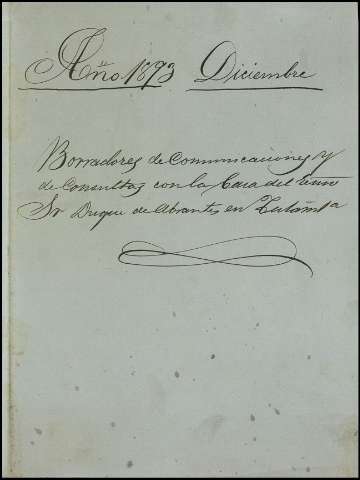 Año 1893 Diciembre
Borradores de Comunicaciones y
de Consultas con la Casa del Exmo
Sr Duque de Abrantes en